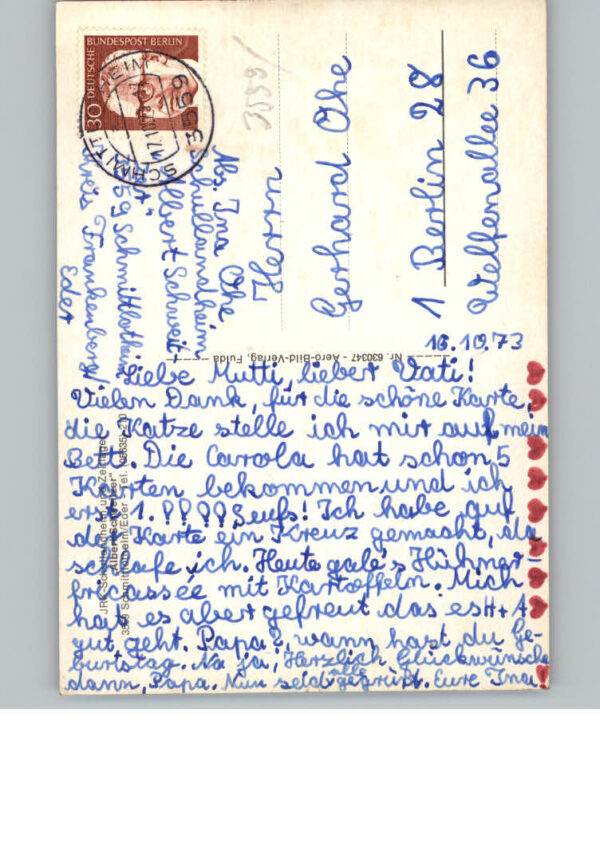 DEUTSCHE BUNDESPOST BERLIN
30
3559
17.10.73
3559/
Abs. Ina Ohe
Schullandheim
Albert Schweit-
3559 Schmittlotheim
Kreis Frankenberg/
Eder
Herrn
Gerhard Ohe
1 Berlin 28
Welfenallee 36
Nr. 630347 - Aero-Bild-Verlag, Fulda
16.10.73
Liebe Mutti, lieber Vati!
Vielen Dank, für die schöne Karte,
die Katze stelle ich mir auf mein
Bett. Die Carola hat schon 5
Karten bekommen und ich
erst 1. ???? Seufs! Ich habe auf
der Karte ein Kreuz gemacht, da
schlafe ich. Heute gab's Hühner-
fricassée mit Kartoffeln. Mich
hat es aber gefreut das es H + A
gut geht. Papa?, wann hast du Ge-
burtstag. Na ja, Herzlich Glückwünsche
dann, Papa. Nun seid alle gegrüßt. Eure Ina!
JRK-Schullandheim und Zeltlager
"Albert Schweitzer"
3559 Schmittlotheim/Eder